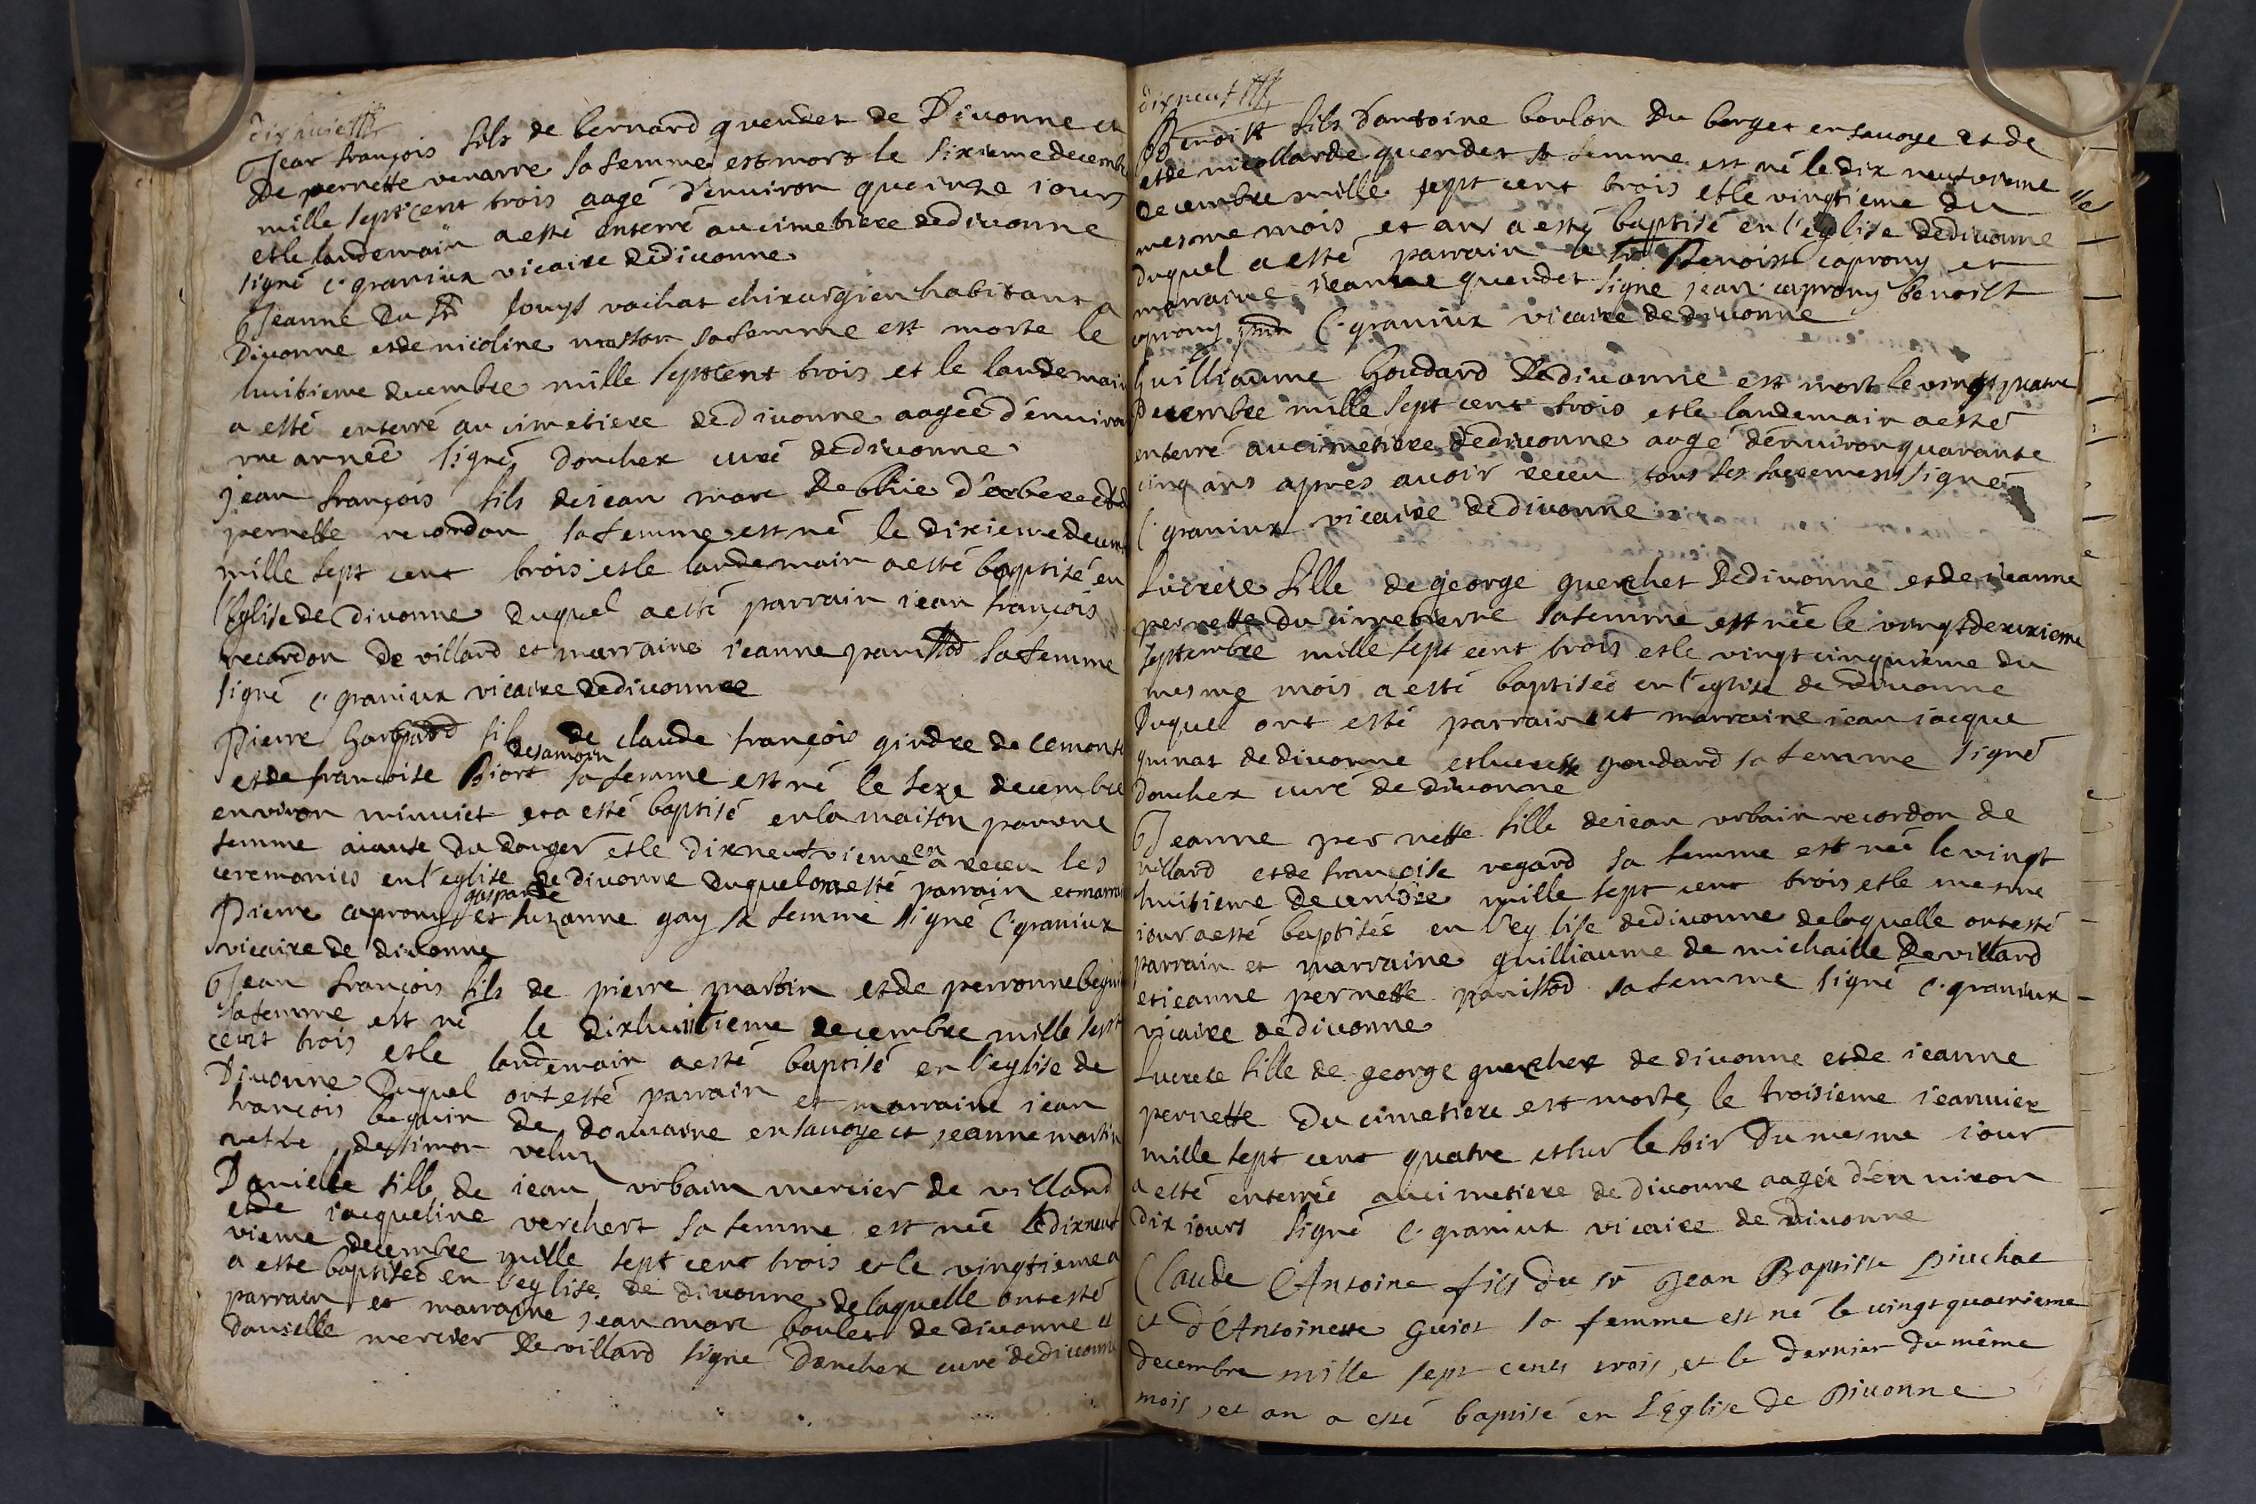 dixhuict
Jean françois fils de bernard quendet de Divonne et
de pernette venarre sa femme est mort le sixieme decembre
mille sept cent trois aagé d'environ quainze iours
et le landemain a esté enterré au cimetiere de divonne
signé c. graniux vicaire de divonne
Jeanne du sr louys vachat chirurgien habitant a
Divonne et de nicoline masson sa femme est morte le
huitieme decembre mille sept cent trois et le landemain
a esté enterré au cimetiere de divonne aagée d'environ
une année signé donchex curé de divonne
jean françois fils de iean marc de d'erbere et de
pernette recordon sa femme est né le dixieme decembre
mille sept cent trois et le landemain a esté baptisé en
l'Eglise de divonne duquel a esté parrain iean françois
recordon de villard et marraine ieanne panissod sa femme
signé c. graniux vicaire de divonne
Pierre gaspard fils de claude françois gindre de cemont
desamoin
et de françoise Biort sa femme est né le seze decembre
environ minuict et a esté baptisé en la maison par une
femme a cause du danger et le dixneufvieme en a receu les
ceremonies en l'eglise de divonne duquel ont esté parrain et marraine
gasparde
Pierre caprony et suzanne gay sa femme signé C. graniux
vicaire de divonne
Jean françois fils de pierre martin et de perronne beguin
sa femme est né le dixhuitieme decembre mille sept
cent trois et le landemain a esté baptisé en l'eglise de
Divonne duquel ont esté parrain et marraine iean
françois beguin de douvaine en savoye et jeanne martin
vefve de simon velu
Danielle fille de iean urbain mercier de villard
et de iacqueline verchert sa femme est née le dixneuf
vieme decembre mille sept cent trois et le vingtieme a
a esté baptisée en l'eglise de divonne de laquelle ont esté
parrain et marraine jean marc boulet de divonne et
danielle mercier de villard signé donchex curé de divonne
dixneuf
Benoist fils d'antoine boulon du borget en savoye et de
et de nicollarde quendet sa femme est né le dix neufvieme
decembre mille sept cent trois et le vingtieme du
mesme mois et an a esté baptisé en l'eglise de divonne
duquel a esté parrain le sr Benoist caprony et
marraine jeanne quendet signé jean caprony benoist
caprony C. graniux vicaire de divonne
Guilliaume goudard de divonne est mort le vingt quatre
Decembre mille sept cent trois et le landemain a esté
enterré au cimetiere de divonne aagé d'environ quarante
cinq ans apres avoir receu tous ses sacrements signé
C. graniux vicaire de divonne
Lucrese fille de george guerchet de divonne et de ieanne
pernette du cimetierre sa femme est née le vingt deuxieme
septembre mille sept cent trois et le vingt cinquieme du
mesme mois a esté baptisée en l'eglise de divonne
Duquel ont esté parrain et marraine iean iacque
guinat de divonne et lucresse goudard sa femme signé
donchex curé de divonne
Jeanne pernette fille de iean urbain recordon de
villard et de françoise regard sa femme est née le vingt
huitieme decembre mille sept cent trois et le mesme
iour a esté baptisée en l'eglise de divonne de laquelle ont esté
parrain et marraine guilliaume de michaille de villard
et ieanne pernette panissod sa femme signé c. graniux
vicaire de divonne
Lucrese fille de george guerchet de divonne et de ieanne
pernette du cimetiere est morte le troisieme ieanvier
mille sept cent quatre et sur le soir du mesme iour
a esté enterrée au cimetiere de divonne aagée d'environ
dix iours signé c. graniux vicaire de divonne
Claude Antoine fils du sr Jean Baptiste Piuchat
et d'Antoinette Guiot sa femme est né le vingt quatrieme
decembre mille sept cents trois, et le dernier du même
mois, et an a esté baptisé en L'Eglise de Divonne